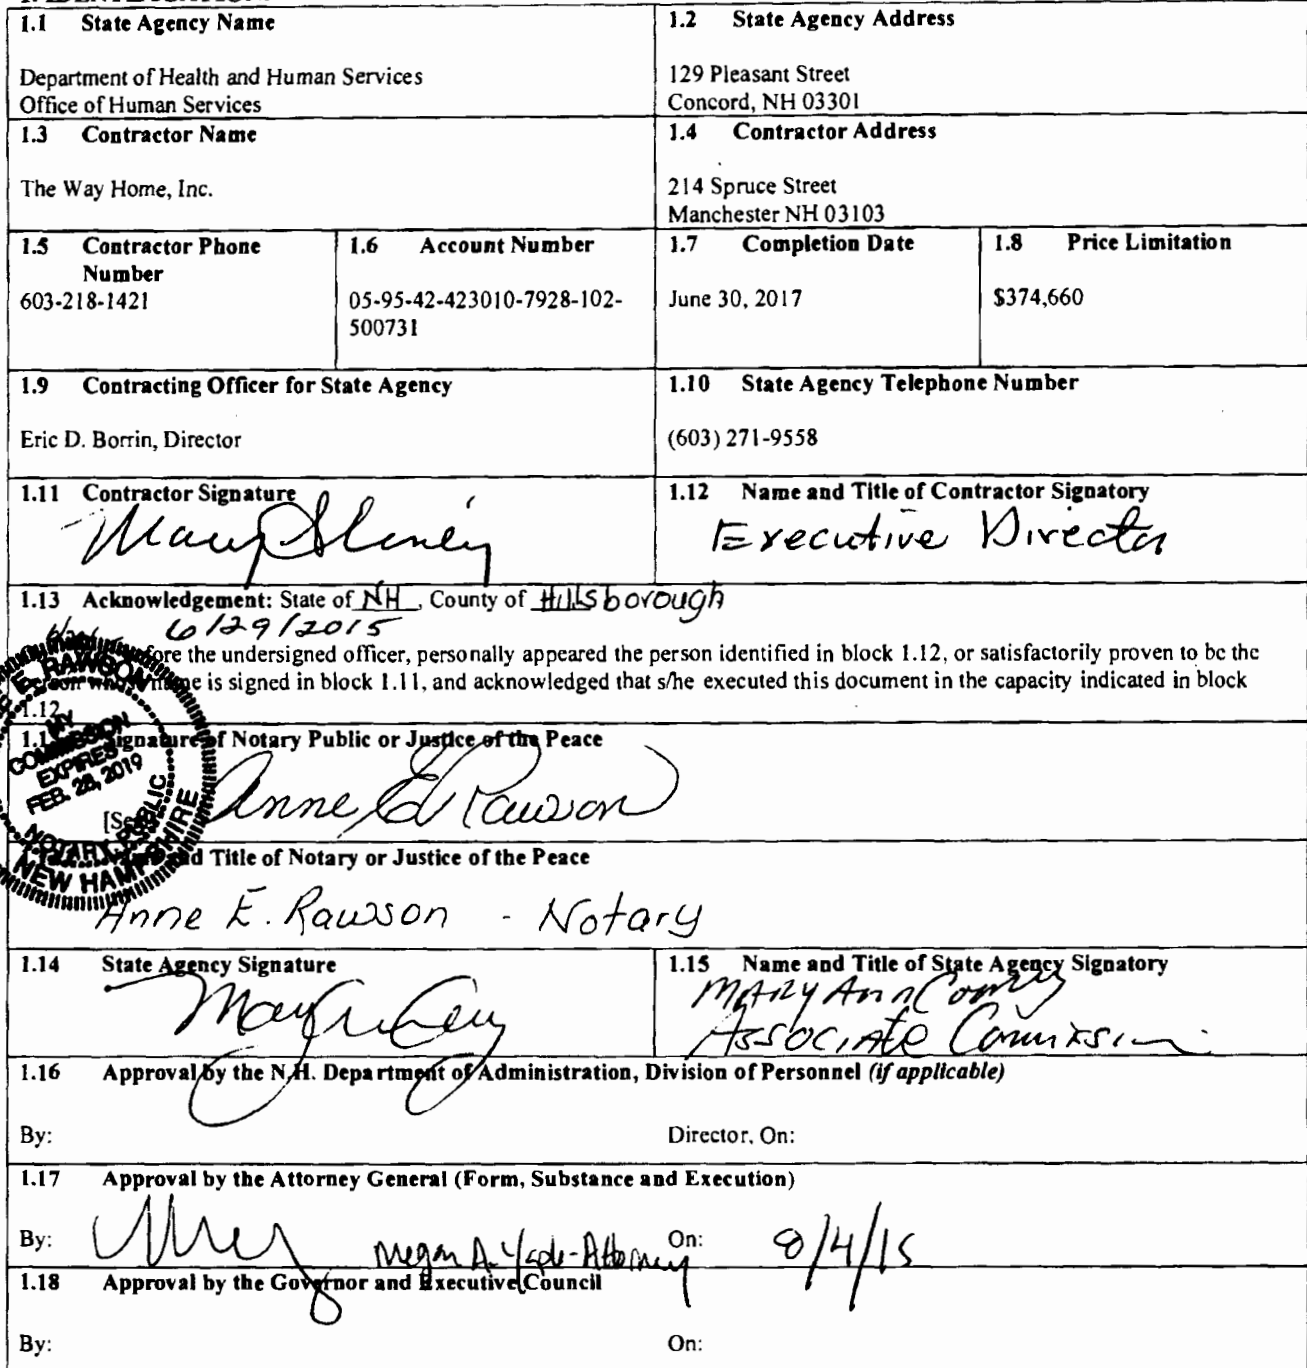 1.1 State Agency Name
Department of Health and Human Services
Office of Human Services
1.2 State Agency Address
129 Pleasant Street
Concord, NH 03301
1.3 Contractor Name
The Way Home, Inc.
1.4 Contractor Address
214 Spruce Street
Manchester NH 03103
1.5 Contractor Phone
Number
603-218-1421
1.6 Account Number
05-95-42-423010-7928-102-
500731
1.7 Completion Date
June 30, 2017
1.8 Price Limitation
$374,660
1.9 Contracting Officer for State Agency
Eric D. Borrin, Director
1.10 State Agency Telephone Number
(603) 271-9558
1.11 Contractor Signature
Mary
1.12 Name and Title of Contractor Signatory
Executive Director
1.13 Acknowledgement: State of NH, County of Hillsborough
6/29/2015
the undersigned officer, personally appeared the person identified in block 1.12, or satisfactorily proven to be the
is signed in block 1.11, and acknowledged that s/he executed this document in the capacity indicated in block
1.12
E. RAWSON
MY
COMMISSION
EXPIRES
FEB. 28, 2019
NOTARY PUBLIC
NEW HAMPSHIRE
of Notary Public or Justice of the Peace
Anne E Rawson
Title of Notary or Justice of the Peace
Anne E. Rawson - Notary
1.14 State Agency Signature
1.15 Name and Title of State Agency Signatory
Mary Ann Cooney
Associate
1.16 Approval by the N.H. Department of Administration, Division of Personnel (if applicable)
By:
Director, On:
1.17 Approval by the Attorney General (Form, Substance and Execution)
By: Megan A. - Attorney On: 8/4/15
1.18 Approval by the Governor and Executive Council
By:
On: